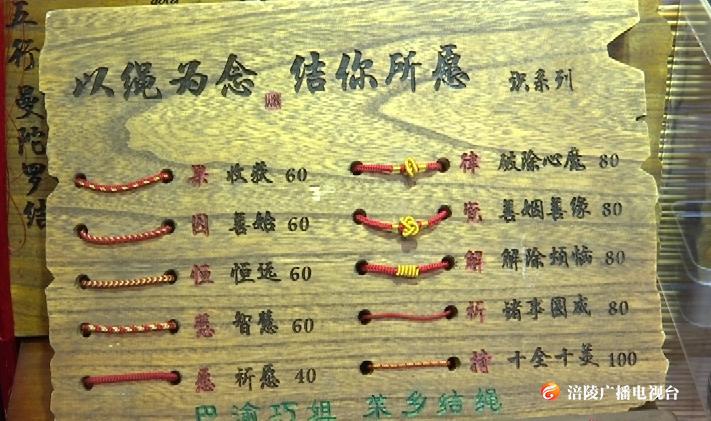 五行曼陀罗结
以绳为念 结你所愿 识系列
果 收获 60
因 善始 60
恒 恒远 60
慧 智慧 60
愿 祈愿 40
律 破除心魔 80
善姻善缘 80
解 解除烦恼 80
祈 诸事圆成 80
持 十全十美 100
巴渝巧姐 菜乡结绳
涪陵广播电视台